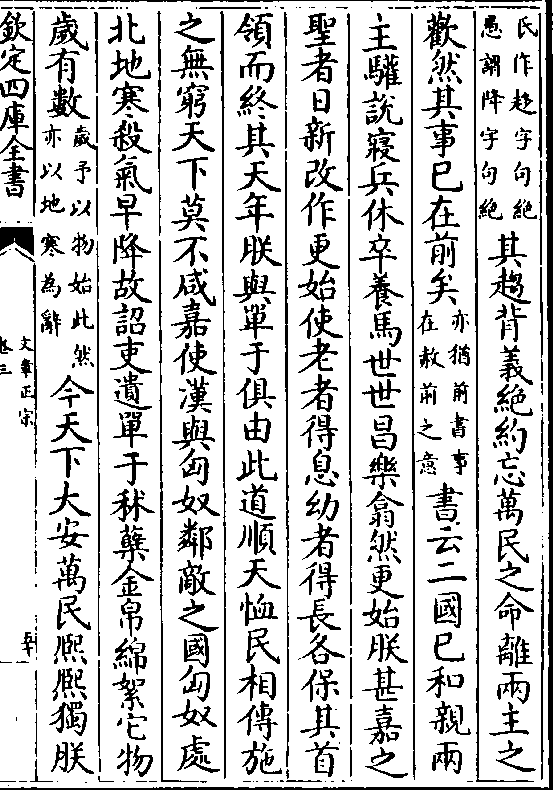 氏作趍字句絶
愚謂降字句絶
其趨背義絶約忘萬民之命離兩主之
歡然其事已在前矣
亦猶前書事
在赦前之意
書云二國已和親兩
主驩說寢兵休卒養馬世世昌樂翕然更始朕甚嘉之
聖者日新改作更始使老者得息幼者得長各保其首
領而終其天年朕與單于俱由此道順天恤民相傳施
之無窮天下莫不咸嘉使漢與匈奴鄰敵之國匈奴處
北地寒殺氣早降故詔吏遺單于秫蘖金帛綿絮它物
歲有數
歲予以物始此然
亦以地寒為辭
今天下大安萬民熈熈獨朕
欽定四庫全書
文章正宗
卷三